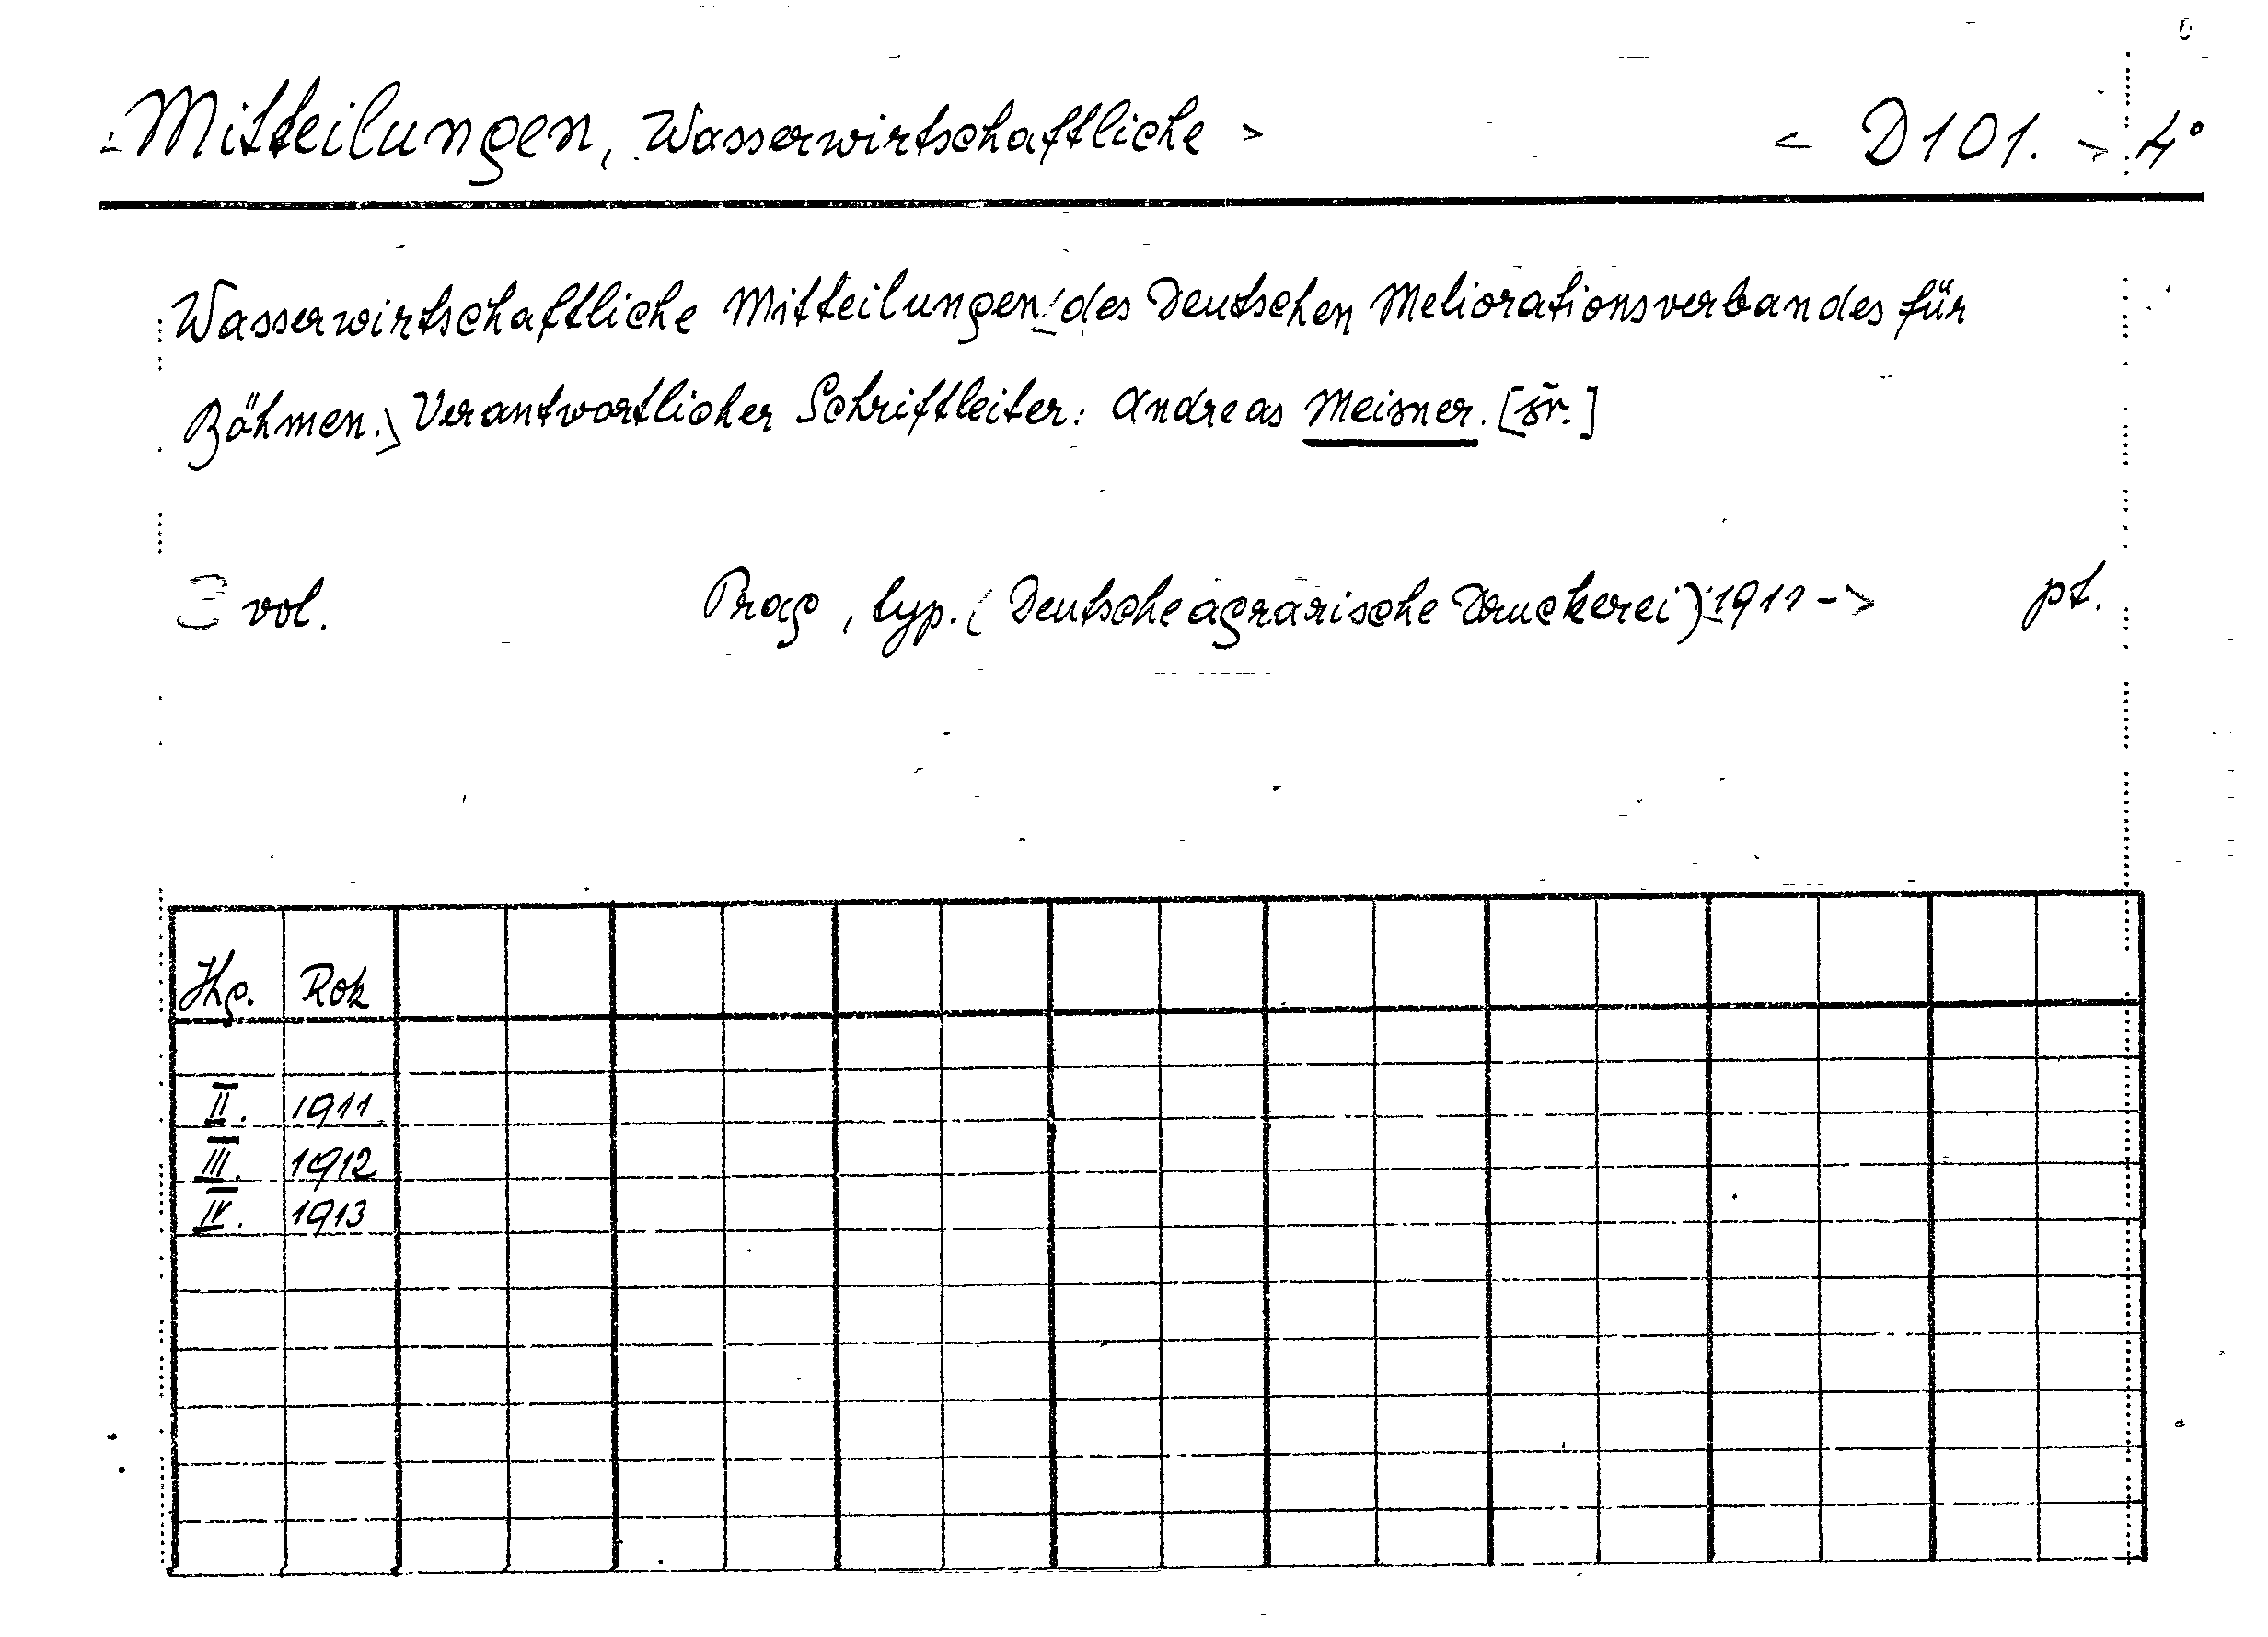 Mitteilungen, Wasserwirtschaftliche > < D 101. > 4°
Wasserwirtschaftliche Mitteilungen des Deutschen Meliorationsverbandes für
Böhmen.> Verantwortlicher Schriftleiter: Andreas Meisner. [šr.]
vol. Prag, typ. (Deutsche agrarische Druckerei) 1911 -> pt.
Jhg. Rok
II. 1911.
III. 1912
IV. 1913